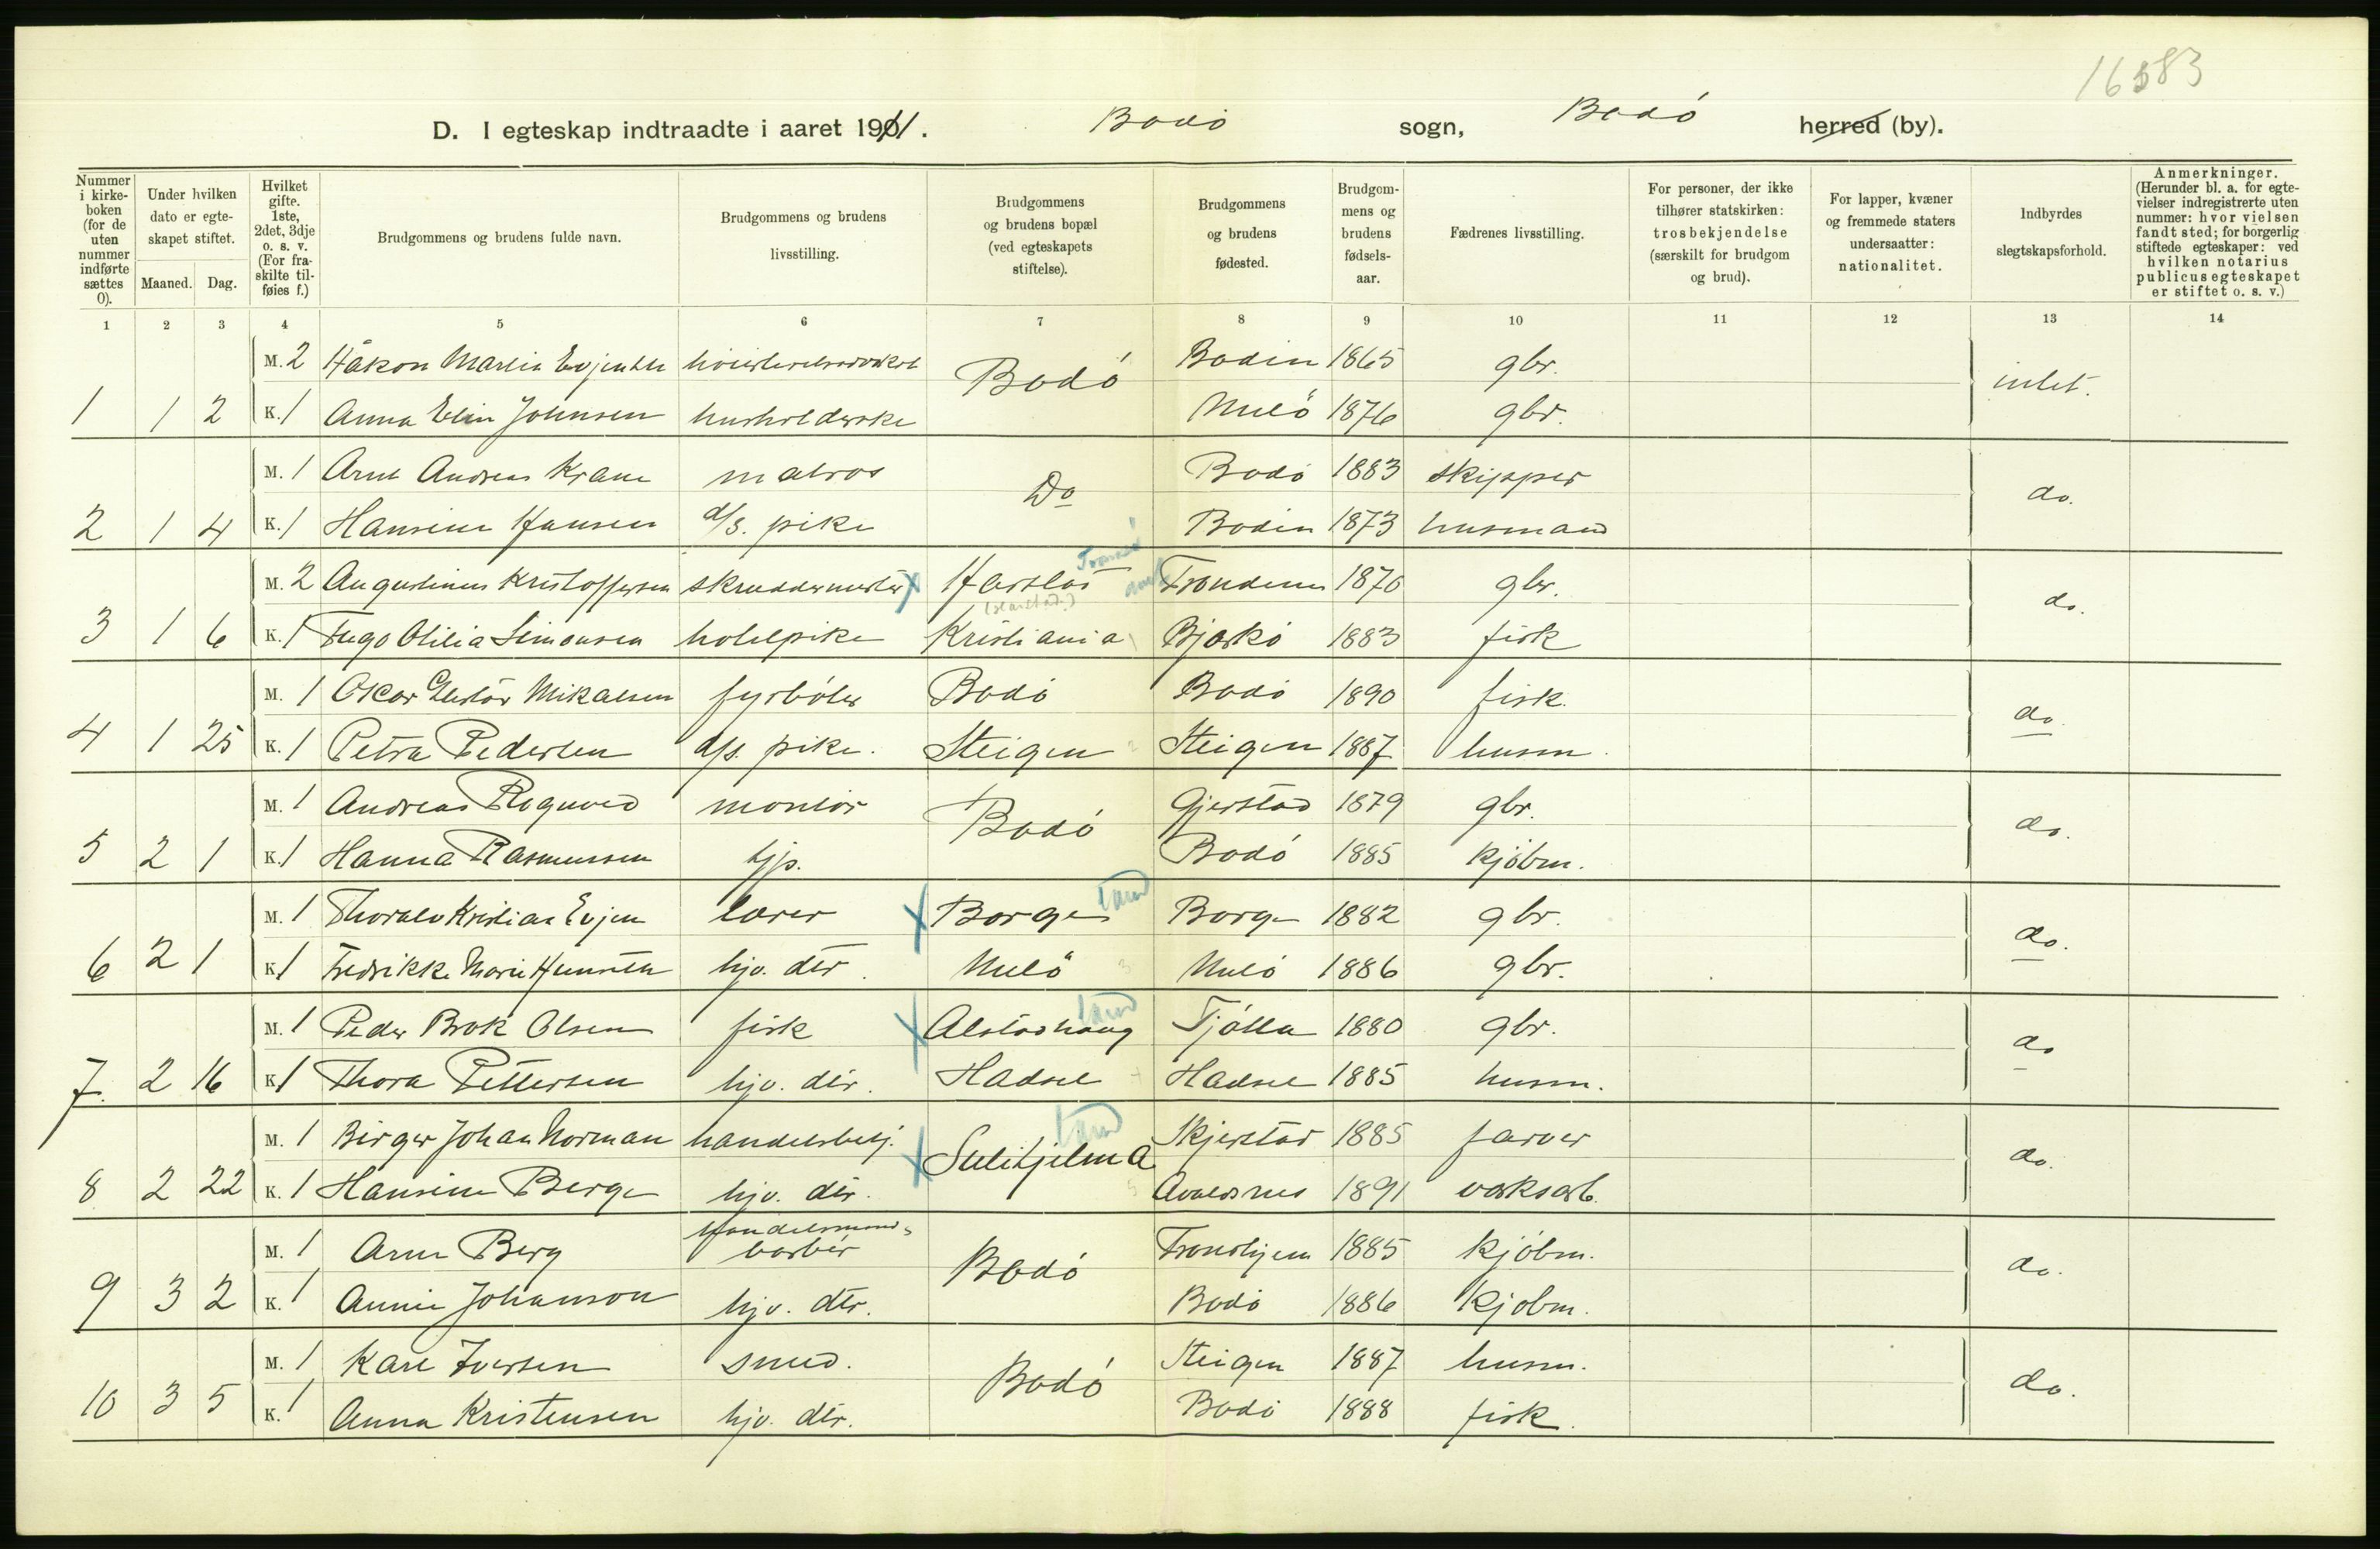 16583
D. I egteskap indtraadte i aaret 1911. Bodö sogn, Bodö herred (by).
Nummer i kirkeboken (for de uten nummer indførte sættes 0).
Under hvilken dato er egteskapet stiftet.
Maaned. Dag.
Hvilket gifte. 1ste, 2det, 3dje o. s. v. (For fraskilte tilføies f.)
Brudgommens og brudens fulde navn.
Brudgommens og brudens livsstilling.
Brudgommens og brudens bopæl (ved egteskapets stiftelse).
Brudgommens og brudens fødested.
Brudgommens og brudens fødselsaar.
Fædrenes livsstilling.
For personer, der ikke tilhører statskirken: trosbekjendelse (særskilt for brudgom og brud).
For lapper, kvæner og fremmede staters undersaatter: nationalitet.
Indbyrdes slegtskapsforhold.
Anmerkninger. (Herunder bl. a. for egtevielser indregistrerte uten nummer: hvor vielsen fandt sted; for borgerlig stiftede egteskaper: ved hvilken notarius publicus egteskapet er stiftet o. s. v.)
1 2 3 4 5 6 7 8 9 10 11 12 13 14
M. 2 Håkon Martin Evjenth Bodö Bodin 1865 gbr. intet.
1 1 2 K. 1 Anna Elin Johnsen husholderske 1876 gbr.
M. 1 Arnt Andreas Krane matros Do Bodö 1883 skipper do.
2 1 4 K. 1 Hansine Hansen d/s. pike Bodin 1873 husmand
M. 2 Augustinus Kristoffersen skræddermester x Harstad Trondenes 1870 gbr. do.
(Harstad?)
3 1 6 K. 1 Otilia Simonsen hotelpike Kristiania Bjarkö 1883 fisk
M. 1 Oskar Gustav Mikalsen fyrböter Bodö Bodö 1890 fisk. do
4 1 25 K. 1 Petra Pedersen d/s. pike. Steigen Steigen 1887 husm.
M. 1 Andreas Rognved montör Bodö Gjerstad 1879 gbr. do.
5 2 1 K. 1 Hanna Rasmussen tjp. Bodö 1885 kjöbm.
M. 1 Thoralv Kristian Evjen lærer x Borge land Borge 1882 gbr. do.
6 2 1 K. 1 Fredrikke Marie hjv. dtr. 1886 gbr.
M. 1 Peder Brok Olsen fisk x Alstadhaug land Tjötta 1880 gbr. do
7. 2 16 K. 1 Thora Pettersen hjv. dtr. Hadsel Hadsel 1885 husm.
M. 1 Birger Johan Norman handelsbetj. x Sulitjelma land Skjerstad 1885 farver do.
8 2 22 K. 1 Hansine Berge hjv. dtr. Avaldsnes 1891 verksarb.
M. 1 Arne Berg barber Bodö Trondhjem 1885 kjöbm. do.
9 3 2 K. 1 Annie Johanson hjv. dtr. Bodö 1886 kjöbm.
M. 1 Karl Iversen smed. Bodö Steigen 1887 husm. do.
10 3 5 K. 1 Anna Kristensen hjv. dtr. Bodö 1888 fisk.